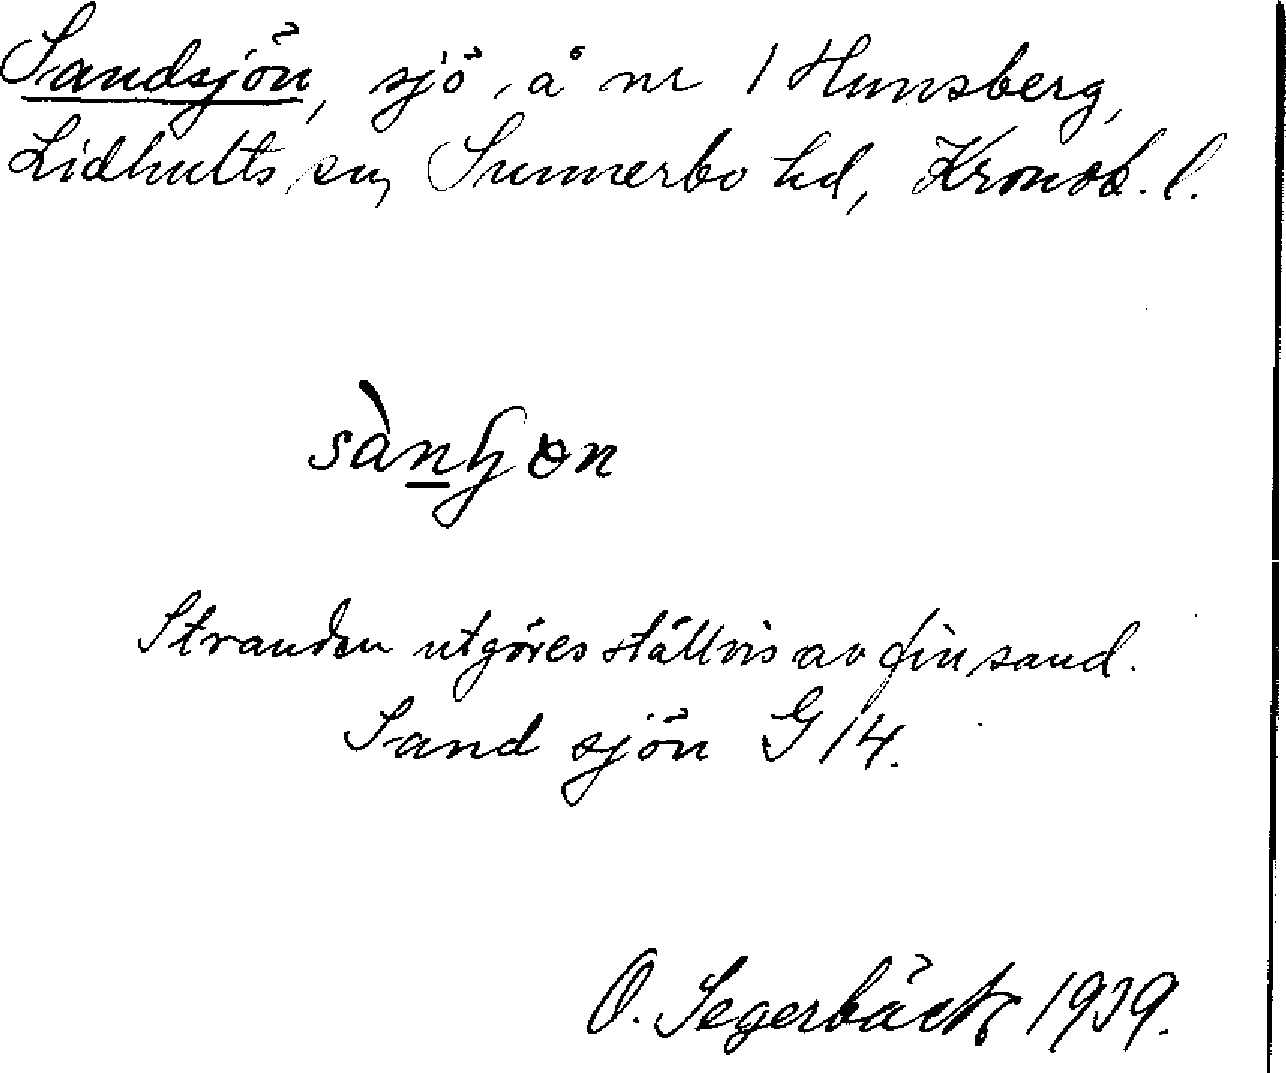 Sandsjön, sjö, å nr 1 Hunsberg,
Lidhults sn, Sunnerbo hd, Kronob. l.
Stranden utgöres ställvis av fin sand.
Sand sjön G 14.
O. Segerbäck 1939.